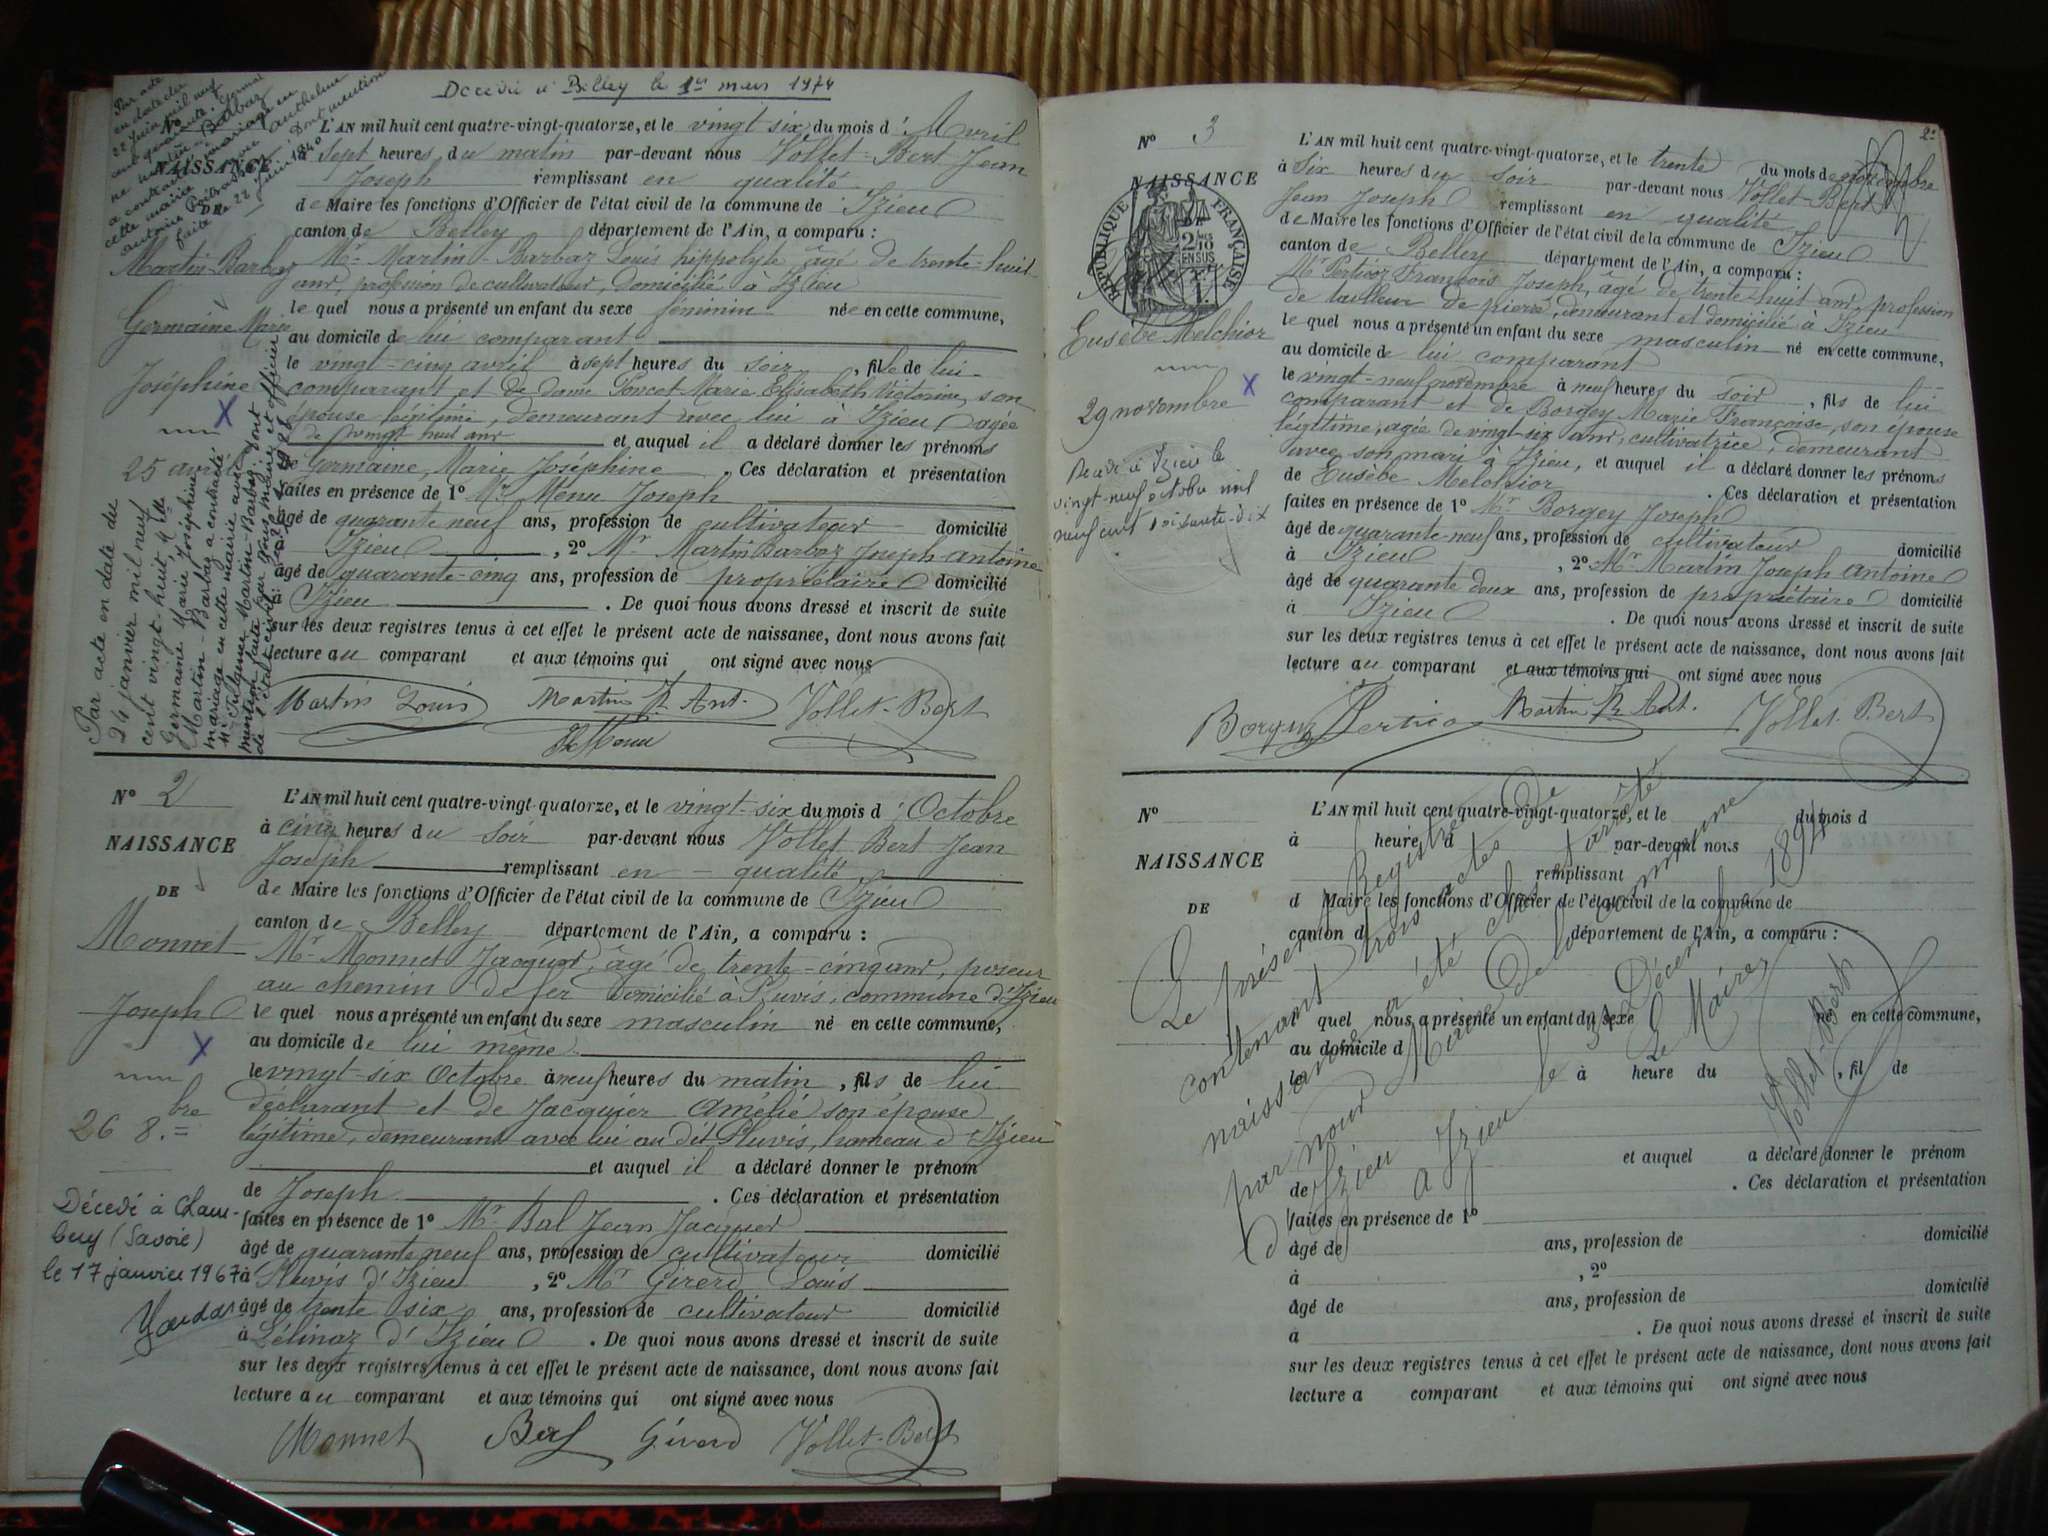 Décédé à Belley le 1er mars 1974
Par acte
en date du
22 Juin mil neuf
cent quarante, Germaine
Martin-Barbaz
a contracté mariage en
cette mairie avec Anthelme
dont mention
faite le 22 Juin 1940
N°
NAISSANCE
DE
Martin-Barbaz
Germaine Marie
Joséphine
X
25 avril
Par acte en date du
24 janvier mil neuf
cent vingt-huit, Mlle
Germaine Marie Joséphine
Martin-Barbaz a contracté
mariage en cette mairie avec
Mr Martin-Barbaz, dont
mention faite par nous maire et officier
de l'état civil
L'AN mil huit cent quatre-vingt-quatorze, et le vingt six du mois d'Avril
à sept heures du matin par-devant nous Vollet-Bert Jean
Joseph remplissant en qualité
de Maire les fonctions d'Officier de l'état civil de la commune de Izieu
canton de Belley département de l'Ain, a comparu :
Mr Martin-Barbaz Louis hippolyte âgé de trente-huit
ans, profession de cultivateur, domicilié à Izieu
le quel nous a présenté un enfant du sexe féminin née en cette commune,
au domicile de lui comparant
le vingt-cinq avril à sept heures du soir, fille de lui
comparant et de dame Poncet Marie Elisabeth Victorine, son
épouse légitime, demeurant avec lui à Izieu agée
de vingt huit ans et auquel il a déclaré donner les prénoms
de Germaine, Marie Joséphine. Ces déclaration et présentation
faites en présence de 1° Mr Menu Joseph
âgé de quarante neuf ans, profession de cultivateur domicilié
à Izieu, 2° Mr Martin Barbaz Joseph Antoine
âgé de quarante-cinq ans, profession de propriétaire domicilié
à Izieu. De quoi nous avons dressé et inscrit de suite
sur les deux registres tenus à cet effet le présent acte de naissance, dont nous avons fait
lecture au comparant et aux témoins qui ont signé avec nous
Martin Louis Martin Ant. Vollet-Bert
Menu
N° 2
NAISSANCE
DE
Monnet
Joseph
X
26 8.bre
Décédé à Cham-
béry (Savoie)
le 17 janvier 1967
L'AN mil huit cent quatre-vingt-quatorze, et le vingt-six du mois d'Octobre
à cinq heures du soir par-devant nous Vollet Bert Jean
Joseph remplissant en qualité
de Maire les fonctions d'Officier de l'état civil de la commune de Izieu
canton de Belley département de l'Ain, a comparu :
Mr Monnet Jacques, âgé de trente-cinq ans, poseur
au chemin de fer domicilié à Pluvis, commune d'Izieu
le quel nous a présenté un enfant du sexe masculin né en cette commune,
au domicile de lui même
le vingt-six Octobre à neuf heures du matin, fils de lui
déclarant et de Jacquier Amélie son épouse
légitime, demeurant avec lui au dit Pluvis, hameau d'Izieu
et auquel il a déclaré donner le prénom
de Joseph. Ces déclaration et présentation
faites en présence de 1° Mr Bal Jean Jacques
âgé de quarante neuf ans, profession de cultivateur domicilié
à Pluvis d'Izieu, 2° Mr Girerd Louis
âgé de trente six ans, profession de cultivateur domicilié
à Lélinaz d'Izieu. De quoi nous avons dressé et inscrit de suite
sur les deux registres tenus à cet effet le présent acte de naissance, dont nous avons fait
lecture au comparant et aux témoins qui ont signé avec nous
Monnet Girerd Vollet-Bert
2
N° 3
NAISSANCE
DE
RÉPUBLIQUE FRANÇAISE
2/10
EN SUS
Eusèbe Melchior
X
29 novembre
Décédé à Izieu le
vingt-neuf octobre mil
neuf cent soixante-dix
L'AN mil huit cent quatre-vingt-quatorze, et le trente du mois de novembre
à six heures du soir par-devant nous Vollet-Bert
Jean Joseph remplissant en qualité
de Maire les fonctions d'Officier de l'état civil de la commune de Izieu
canton de Belley département de l'Ain, a comparu :
Mr Perticoz François Joseph, âgé de trente-huit ans, profession
de tailleur de pierre, demeurant et domicilié à Izieu
le quel nous a présenté un enfant du sexe masculin né en cette commune,
au domicile de lui comparant
le vingt-neuf novembre à neuf heures du soir, fils de lui
comparant et de Borgey Marie Françoise, son épouse
légitime, agée de vingt-six ans, cultivatrice, demeurant
avec son mari à Izieu, et auquel il a déclaré donner les prénoms
de Eusèbe Melchior. Ces déclaration et présentation
faites en présence de 1° Mr Borgey Joseph
âgé de quarante-neuf ans, profession de cultivateur domicilié
à Izieu, 2° Mr Martin Joseph Antoine
âgé de quarante deux ans, profession de propriétaire domicilié
à Izieu. De quoi nous avons dressé et inscrit de suite
sur les deux registres tenus à cet effet le présent acte de naissance, dont nous avons fait
lecture au comparant et aux témoins qui ont signé avec nous
Borgey Perticoz Martin Ant. Vollet-Bert
N°
NAISSANCE
DE
L'AN mil huit cent quatre-vingt-quatorze, et le du mois d
à heure d par-devant nous
remplissant
d Maire les fonctions d'Officier de l'état civil de la commune de
canton d département de l'Ain, a comparu :
l quel nous a présenté un enfant du sexe né en cette commune,
au domicile d
le à heure du , fil de
et auquel a déclaré donner le prénom
de . Ces déclaration et présentation
faites en présence de 1°
âgé de ans, profession de domicilié
à , 2°
âgé de ans, profession de domicilié
à . De quoi nous avons dressé et inscrit de suite
sur les deux registres tenus à cet effet le présent acte de naissance, dont nous avons fait
lecture a comparant et aux témoins qui ont signé avec nous
Le présent Registre
contenant trois actes de
naissance a été clos et arrêté
par nous Maire de la commune
d'Izieu
à Izieu le 31 Décembre 1894
Le Maire
Vollet-Bert